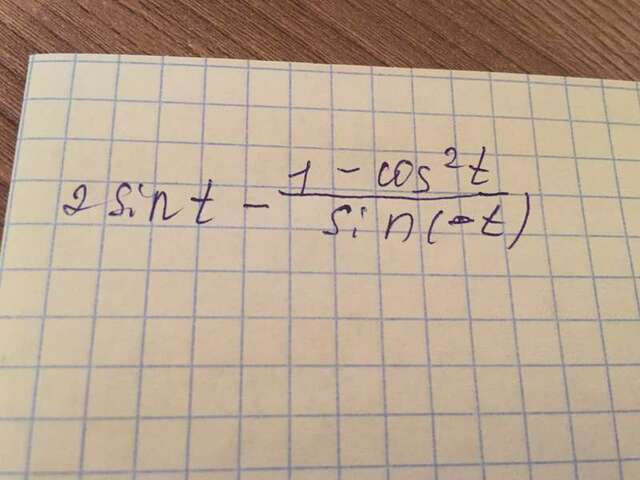 2 sin t - (1 - cos²t)/(sin(-t))